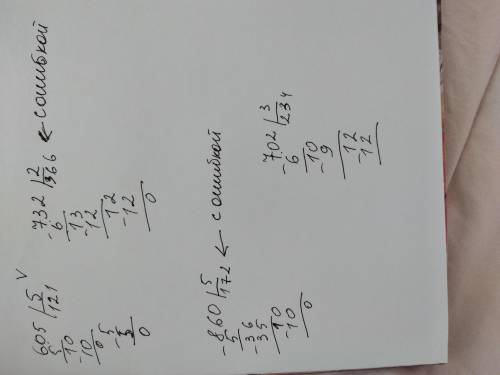 605 | 5 V
5 121
10
-10
0 5
0
732 | 2
-6 366 ← с ошибкой
13
-12
12
-12
0
-860 | 5
5 172 ← с ошибкой
-36
35
10
-10
0
702 | 3
-6 234
10
-9
12
-12